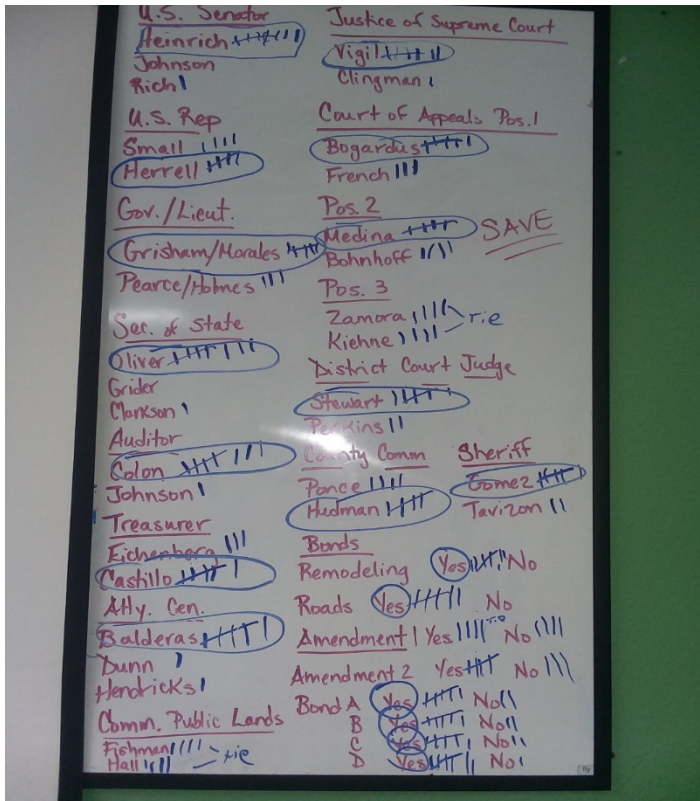 U.S. Senator
Heinrich
Johnson
Rich
U.S. Rep
Small
Herrell
Gov./Lieut.
Grisham/Morales
Pearce/Holmes
Sec. of State
Oliver
Grider
Clarkson
Auditor
Colon
Johnson
Treasurer
Eichenberg
Castillo
Atty. Gen.
Balderas
Dunn
Hendricks
Comm. Public Lands
Fishman
Hall tie
Justice of Supreme Court
Vigil
Clingman
Court of Appeals Pos. 1
Bogardus
French
Pos. 2
Medina
Bohnhoff
SAVE
Pos. 3
Zamora
Kiehne Tie
District Court Judge
Stewart
Perkins
County Comm
Ponce
Hudman
Sheriff
Gomez
Tavizon
Bonds
Remodeling Yes No
Roads Yes No
Amendment 1 Yes Tie No
Amendment 2 Yes No
Bond A Yes No
B Yes No
C Yes No
D Yes No